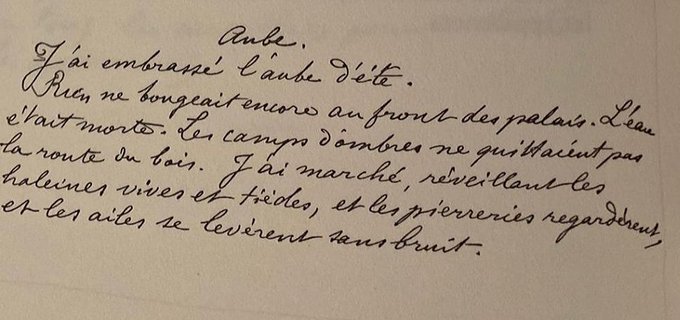 Aube.
J'ai embrassé l'aube d'été.
Rien ne bougeait encore au front des palais. L'eau
était morte. Les camps d'ombres ne quittaient pas
la route du bois. J'ai marché, réveillant les
haleines vives et tièdes, et les pierreries regardèrent,
et les ailes se levèrent sans bruit.